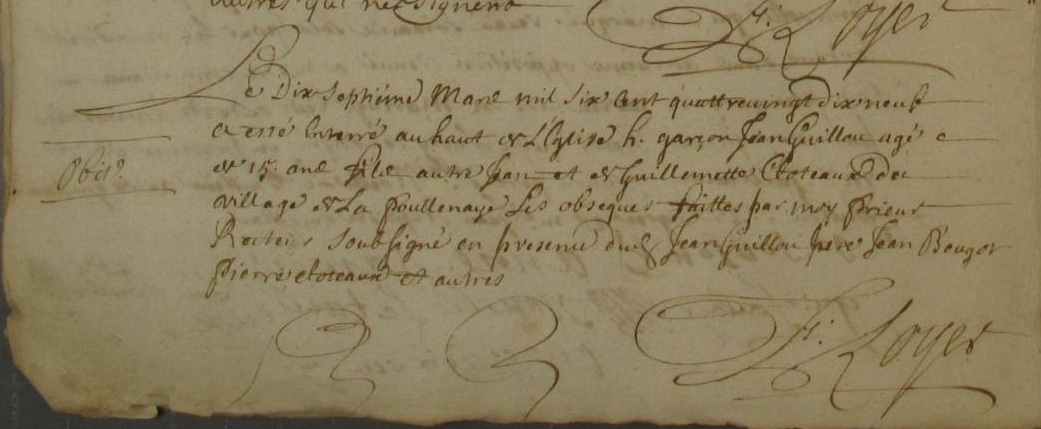 autres qui ne signent
F. Loyer
Le Dixseptième Mars mil six cent quattrevingt dix neuf
a esté Enterré au haut de L'Eglise h. garçon Jean Guillou agé
Obit.
de 15. ans fils autre Jean et de Guillemette Etoteaux du
village de La Poullenaye Les obseques faittes par moy Prieur
Recteur Soubsigné en presence dud. Jean Guillou père Jean Bougot
Pierre etoteaux et autres
F. Loyer